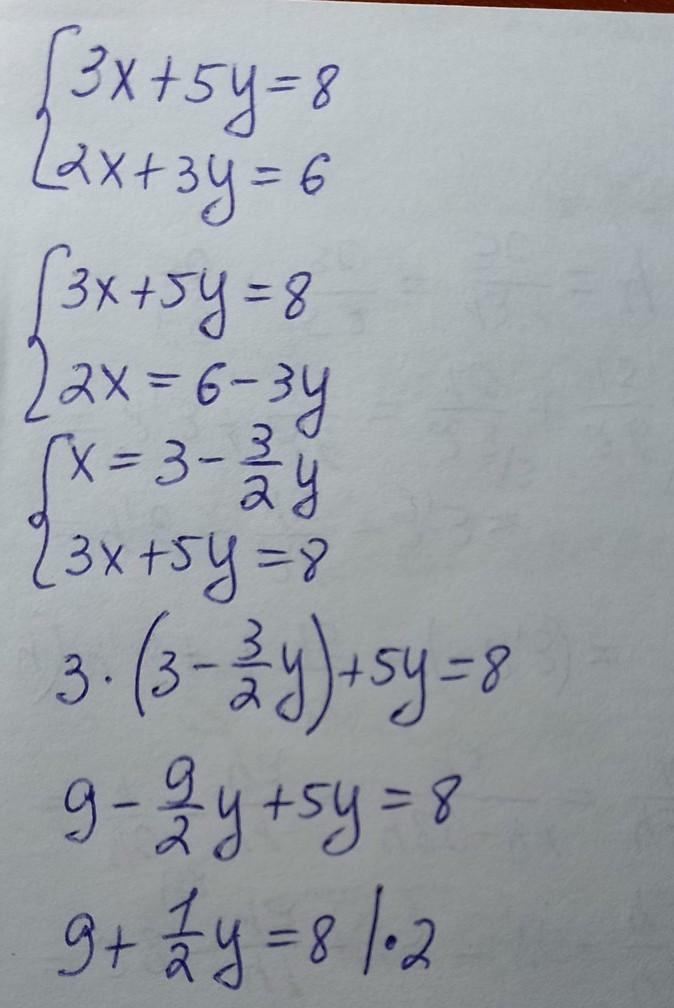 {3x+5y=8
{2x+3y=6
{3x+5y=8
{2x=6-3y
{x=3-3/2y
{3x+5y=8
3·(3-3/2y)+5y=8
9-9/2y+5y=8
9+1/2y=8 |·2